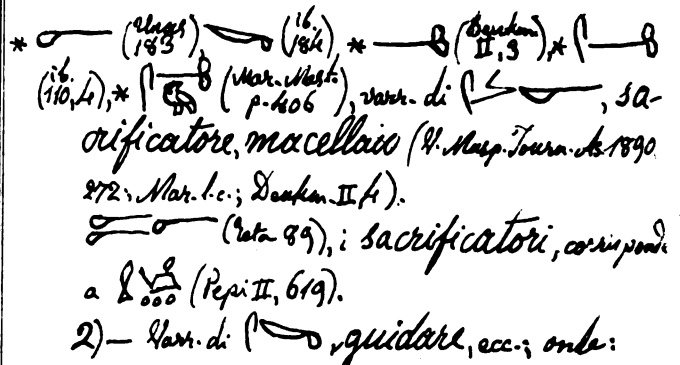 * (Unas 183), (ib. 184), * (Denkm. II, 3), *
(ib. 110, 4), * (Mar. Mast. p. 406), varr. di , sa-
crificatore, macellaio (V. Masp. Journ. As. 1890
272; Mar. l. c.; Denkm. II 4).
(Teta 89), i sacrificatori, corrisponde
a (Pepi II, 619).
2) — Varr. di , guidare, ecc.; onde: